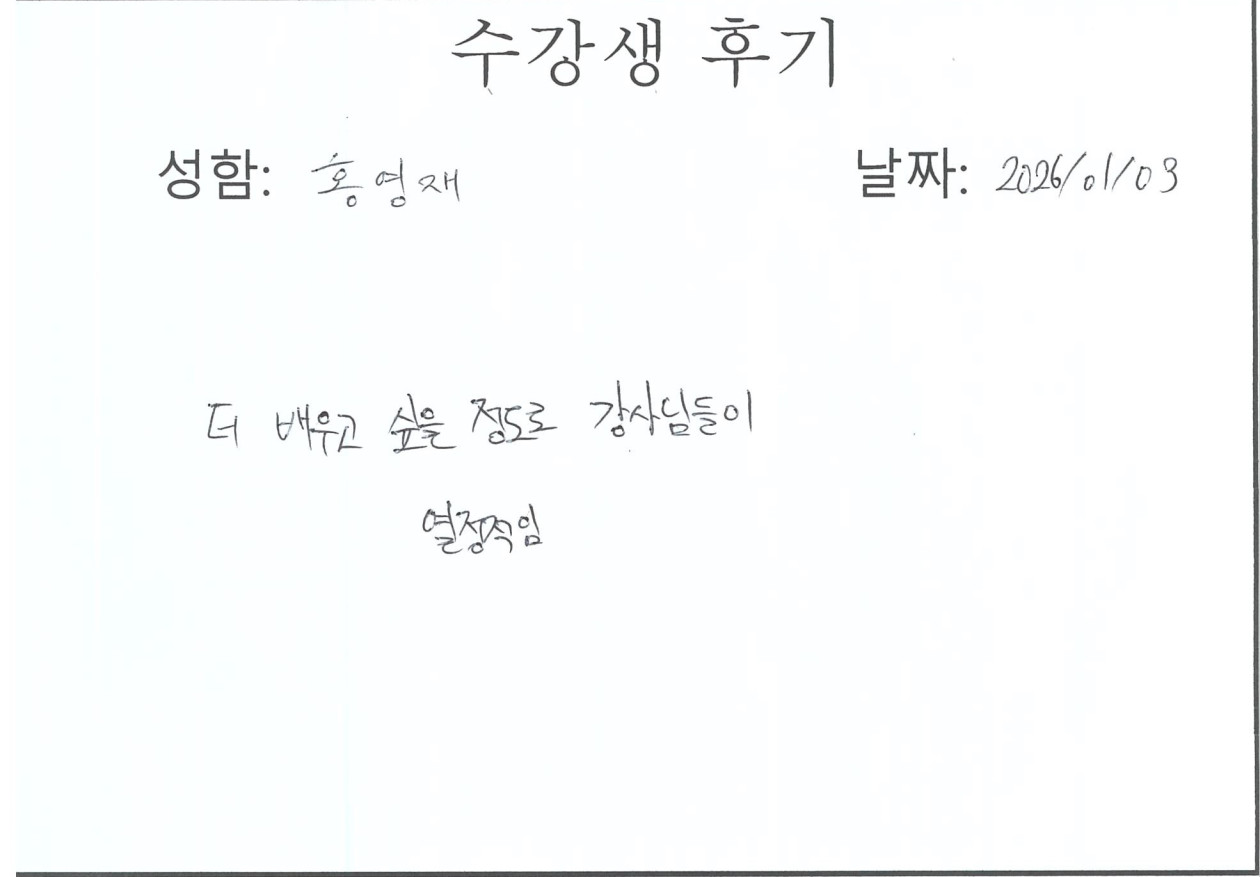 수강생 후기
성함: 홍영재 날짜: 2026/01/03
더 배우고 싶을 정도로 강사님들이
열정적임